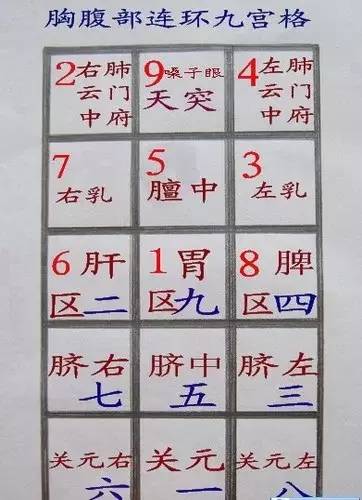 胸腹部连环九宫格
2 右云中 肺门府
9 嗓子眼
天突
4 左云中 肺门府
7 右乳
5 膻中
3 左乳
6 肝
区 二
1 胃
区 九
8 脾
区 四
脐右
七
脐中
五
脐左
三
关元右
六
关元
一
关元左
八